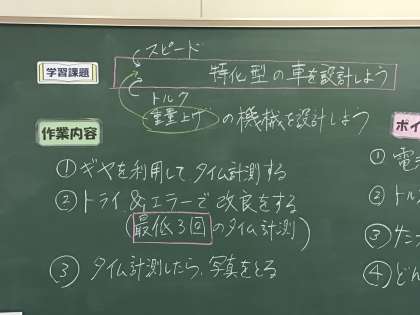 スピード
学習課題
特化型の車を設計しよう
トルク
重量上げの機械を設計しよう
作業内容
①ギヤを利用してタイム計測する
②トライ&エラーで改良をする
(最低3回のタイム計測)
③タイム計測したら、写真をとる
ポイ
①電
②トル
③
④どん